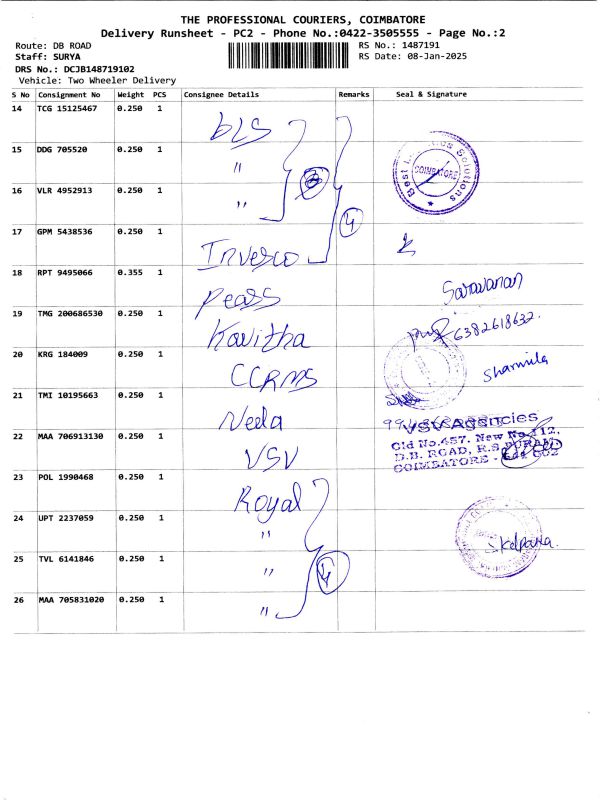 THE PROFESSIONAL COURIERS, COIMBATORE
Delivery Runsheet - PC2 - Phone No.:0422-3505555 - Page No.:2
Route: DB ROAD
RS No.: 1487191
Staff: SURYA
RS Date: 08-Jan-2025
DRS No.: DCJB148719102
Vehicle: Two Wheeler Delivery
S No Consignment No Weight PCS Consignee Details Remarks Seal & Signature
14 TCG 15125467 0.250 1 bLS
15 DDG 705520 0.250 1 "
16 VLR 4952913 0.250 1 "
Best Solutions
COIMBATORE
4
17 GPM 5438536 0.250 1 Invesco
18 RPT 9495066 0.355 1 Pears Saravanan
19 TMG 200686530 0.250 1 Kavitha 6382618632.
20 KRG 184009 0.250 1 CCRMS Sharmila
21 TMI 10195663 0.250 1 Neela
VSV Agencies
Old No.457, New No.112,
D.B. ROAD, R.S.PURAM,
COIMBATORE - 641 002
22 MAA 706913130 0.250 1 VSV
23 POL 1990468 0.250 1 Royal
24 UPT 2237059 0.250 1 "
25 TVL 6141846 0.250 1 " 4
26 MAA 705831020 0.250 1 "